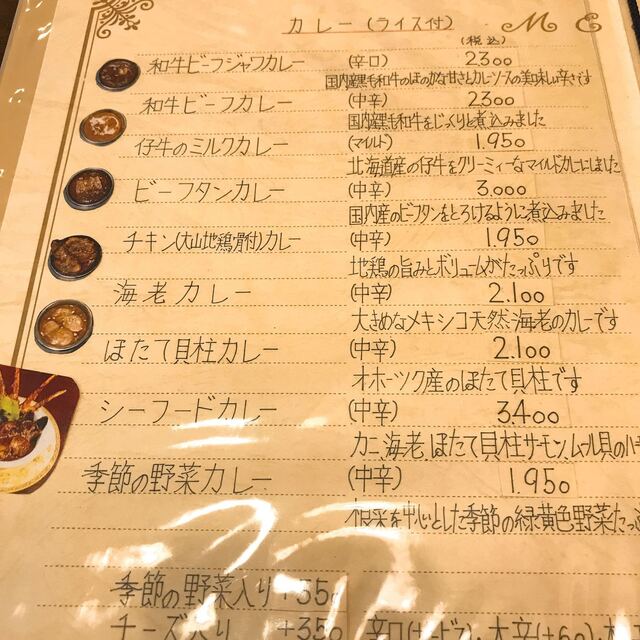 カレー(ライス付) M E
(税込)
和牛ビーフジャワカレー (辛口) 2300
国内産黒毛和牛のほのかな甘さとカレーソースの美味しい辛さです
和牛ビーフカレー (中辛) 2300
国内産黒毛和牛をじっくりと煮込みました
仔牛のミルクカレー (マイルド) 1.950
北海道産の仔牛をクリーミィーなマイルドカレーにしました
ビーフタンカレー (中辛) 3.000
国内産のビーフタンをとろけるように煮込みました
チキン(大山地鶏骨付)カレー (中辛) 1.950
地鶏の旨みとボリュームがたっぷりです
海老カレー (中辛) 2.100
大きめなメキシコ天然海老のカレーです
ほたて貝柱カレー (中辛) 2.100
オホーツク産のほたて貝柱です
シーフードカレー (中辛) 3.400
カニ、海老、ほたて貝柱サーモンムール貝のハー
季節の野菜カレー (中辛) 1.950
根菜を中心とした季節の緑黄色野菜たっ
季節の野菜入り +350
チーズ入り +350 辛口(サービス) 大辛(+60)